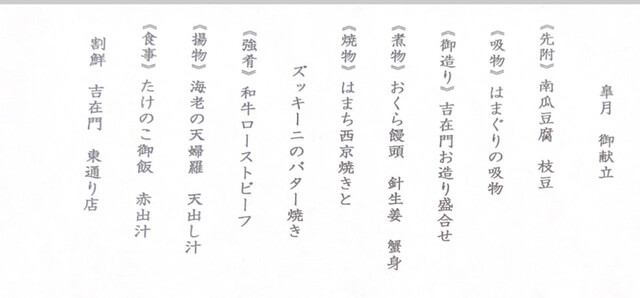 皐月　御献立
《先附》南瓜豆腐　枝豆
《吸物》はまぐりの吸物
《御造り》吉在門お造り盛合せ
《煮物》おくら饅頭　針生姜　蟹身
《焼物》はまち西京焼きと
ズッキーニのバター焼き
《強肴》和牛ローストビーフ
《揚物》海老の天婦羅　天出し汁
《食事》たけのこ御飯　赤出汁
割鮮　吉在門　東通り店